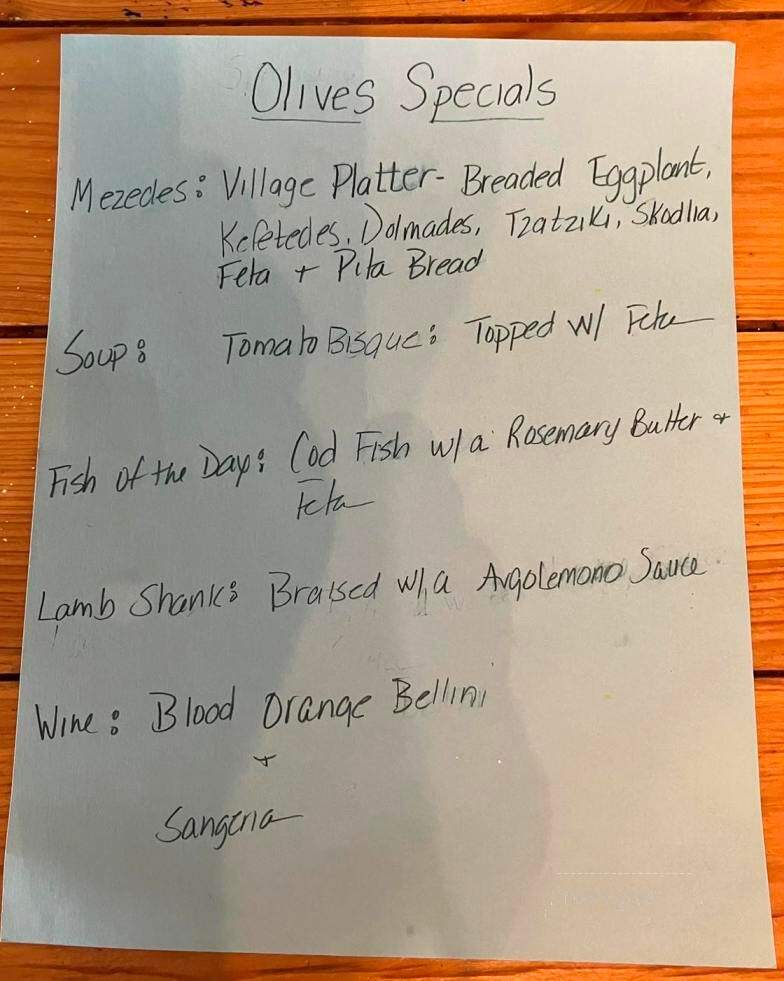 Olives Specials
Mezedes: Village Platter- Breaded Eggplant,
Kefetedes, Dolmades, Tzatziki, Skodlia,
Feta + Pita Bread
Soup: Tomato Bisque: Topped w/ Feta
Fish of the Day: Cod Fish w/a Rosemary Butter +
Feta
Lamb Shank: Braised w/a Avgolemono Sauce
Wine: Blood Orange Bellini
+
Sangria